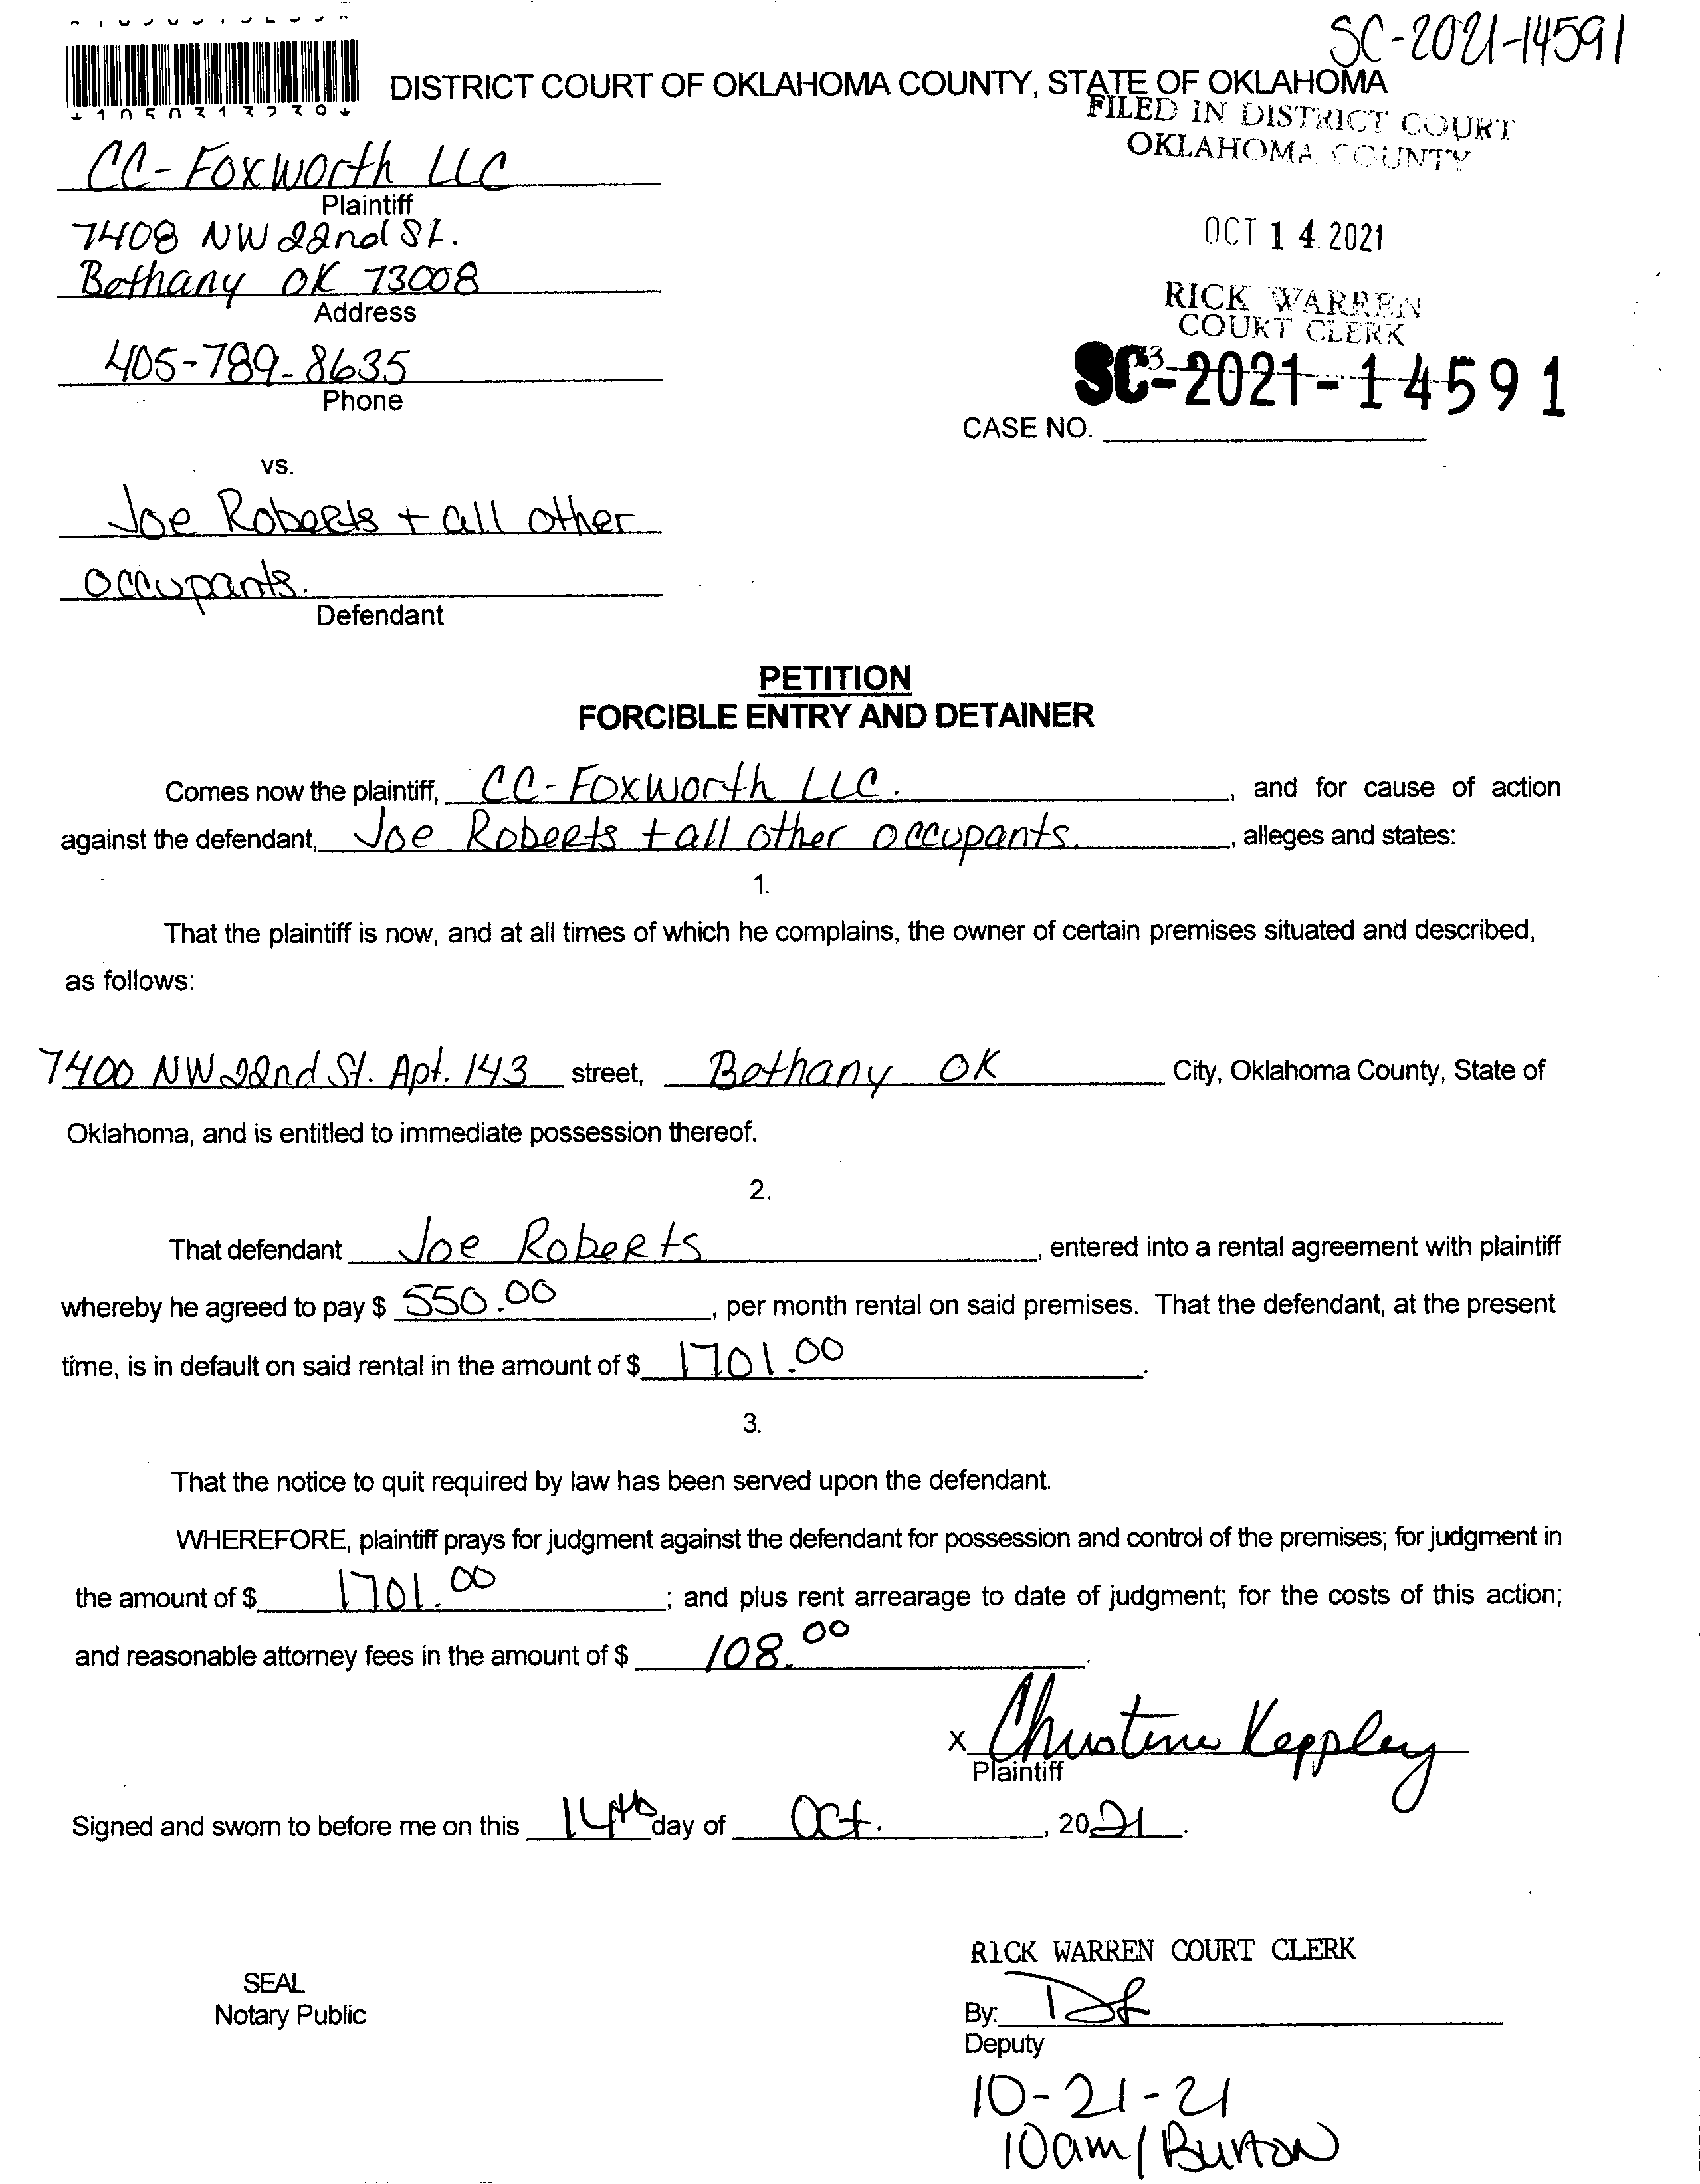 SC-2021-14591
DISTRICT COURT OF OKLAHOMA COUNTY, STATE OF OKLAHOMA
FILED IN DISTRICT COURT
OKLAHOMA COUNTY
CC-Foxworth LLC
Plaintiff
7408 NW 22nd St.
OCT 14 2021
Bethany OK 73008
Address
RICK WARREN
COURT CLERK
405-789-8635
Phone
SC-2021-14591
CASE NO.
vs.
Joe Roberts + all other
occupants.
Defendant
PETITION
FORCIBLE ENTRY AND DETAINER
Comes now the plaintiff, CC-Foxworth LLC. , and for cause of action
against the defendant, Joe Roberts + all other occupants. , alleges and states:
1.
That the plaintiff is now, and at all times of which he complains, the owner of certain premises situated and described,
as follows:
7400 NW 22nd St. Apt. 143 street, Bethany OK City, Oklahoma County, State of
Oklahoma, and is entitled to immediate possession thereof.
2.
That defendant Joe Roberts , entered into a rental agreement with plaintiff
whereby he agreed to pay $ 550.00 , per month rental on said premises. That the defendant, at the present
time, is in default on said rental in the amount of $ 1701.00 .
3.
That the notice to quit required by law has been served upon the defendant.
WHEREFORE, plaintiff prays for judgment against the defendant for possession and control of the premises; for judgment in
the amount of $ 1701.00 ; and plus rent arrearage to date of judgment; for the costs of this action;
and reasonable attorney fees in the amount of $ 108.00 .
X Christine Keppley
Plaintiff
Signed and sworn to before me on this 14th day of Oct. , 2021 .
RICK WARREN COURT CLERK
SEAL
Notary Public
By:
Deputy
10-21-21
10am/Burton